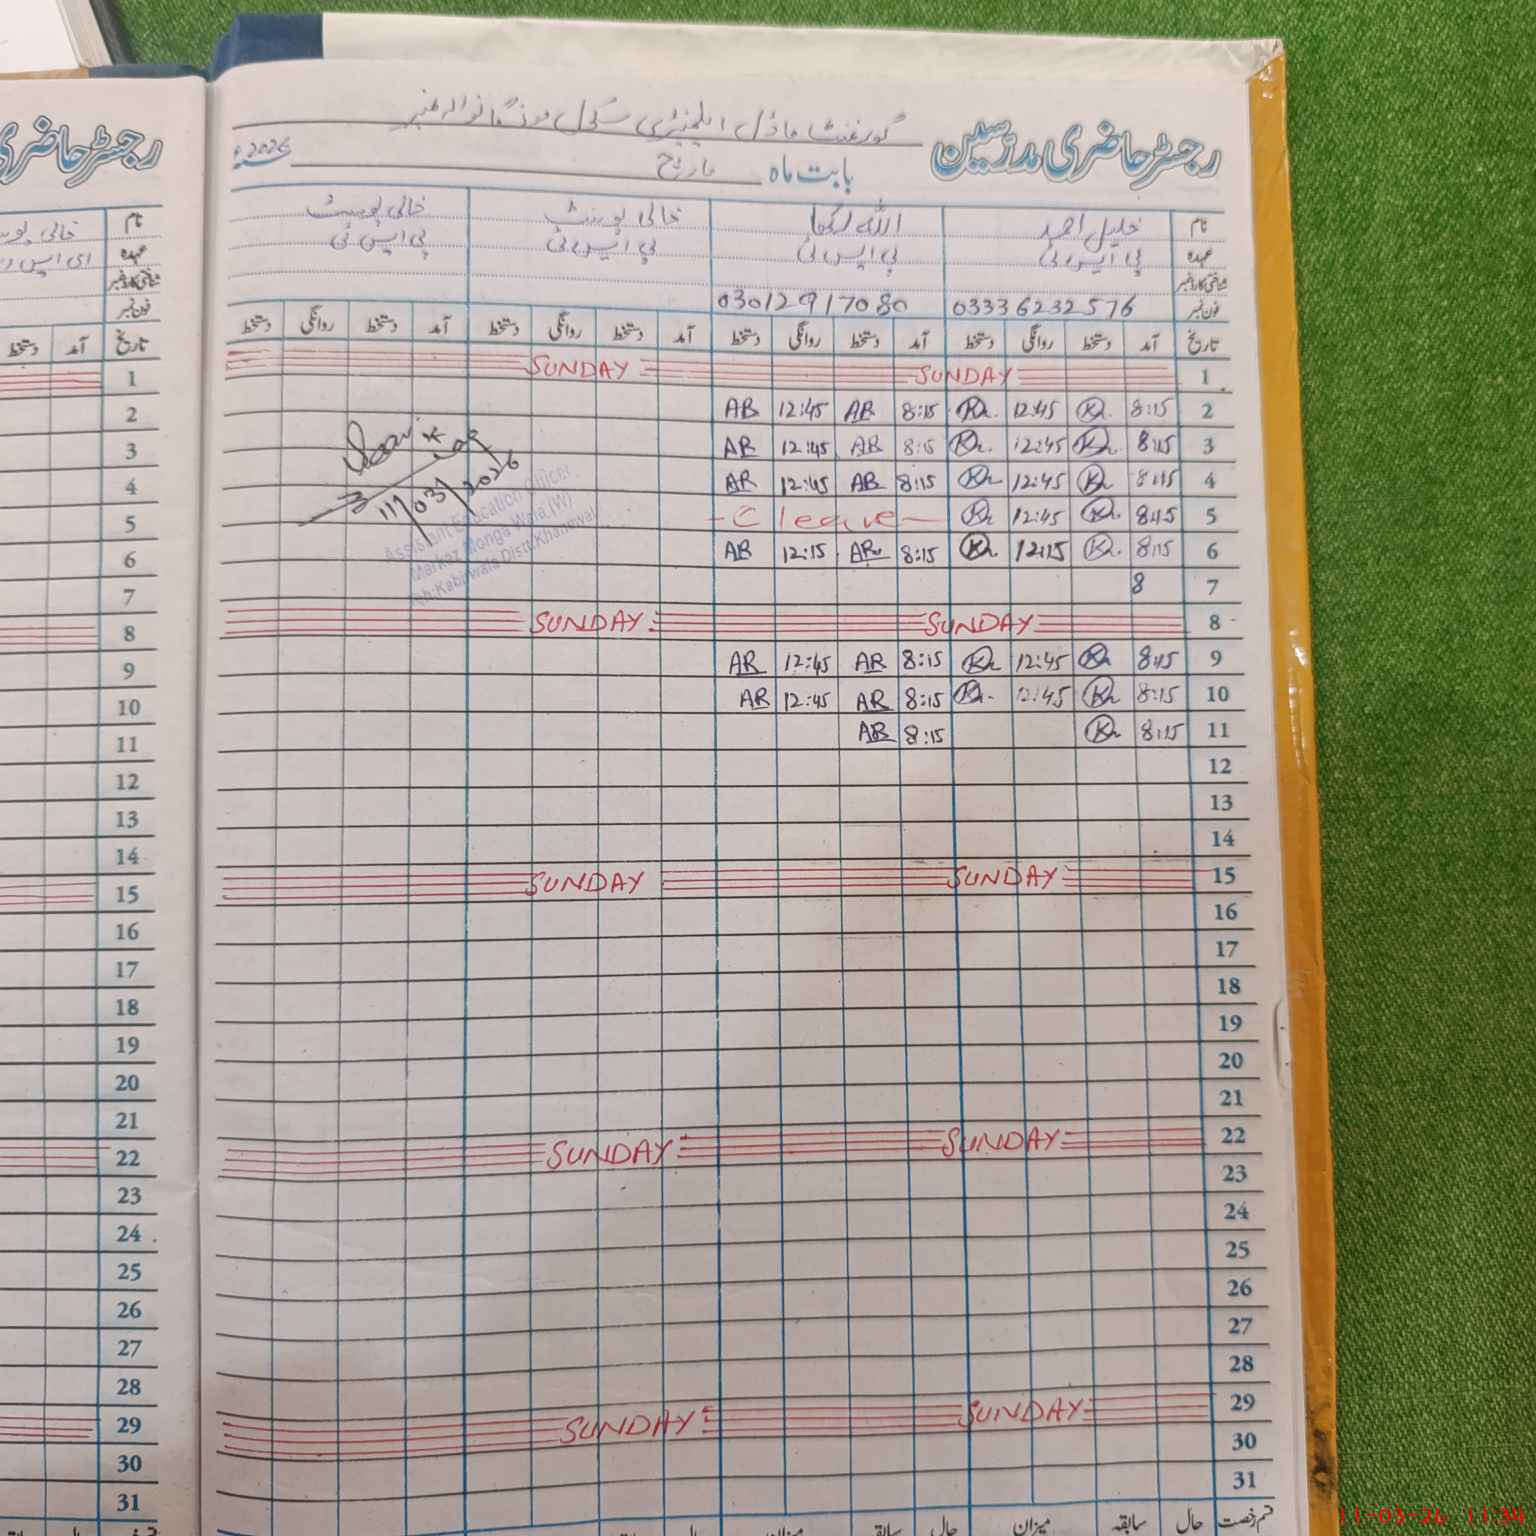 رجسٹر حاضری مدرسین
گورنمنٹ ماڈل ایلیمنٹری سکول مونگانوالہ
بابت ماہ مارچ 2026ء
نام خلیل احمد اللہ رکھا خالی پوسٹ خالی پوسٹ
عہدہ پی ایس ٹی پی ایس ٹی پی ایس ٹی پی ایس ٹی
شناختی کارڈ نمبر
فون نمبر 03336232576 03012917080
تاریخ آمد دستخط روانگی دستخط آمد دستخط روانگی دستخط آمد دستخط روانگی دستخط آمد دستخط روانگی دستخط
1 SUNDAY SUNDAY
2 8:15 12:45 8:15 AB 12:45 AB
3 8:15 12:45 8:15 AB 12:45 AB
4 8:15 12:45 8:15 AB 12:45 AB
5 8:15 12:45 C leave
6 8:15 12:15 8:15 AB 12:15 AB
7 8
8 SUNDAY SUNDAY
9 8:15 12:45 8:15 AB 12:45 AB
10 8:15 12:45 8:15 AB 12:45 AB
11 8:15 8:15 AB
12
13
14
15 SUNDAY SUNDAY
16
17
18
19
20
21
22 SUNDAY SUNDAY
23
24
25
26
27
28
29 SUNDAY SUNDAY
30
31
قسم رخصت حال سابقہ میزان حال سابقہ میزان حال
11/03/2026
Assistant Education Officer
Markaz Monga Wala (W)
Teh:Kabirwala Distt:Khanewal
رجسٹر حاضری
نام
عہدہ
شناختی کارڈ نمبر
فون نمبر
تاریخ آمد دستخط
1
2
3
4
5
6
7
8
9
10
11
12
13
14
15
16
17
18
19
20
21
22
23
24
25
26
27
28
29
30
31
11-03-26 11:34